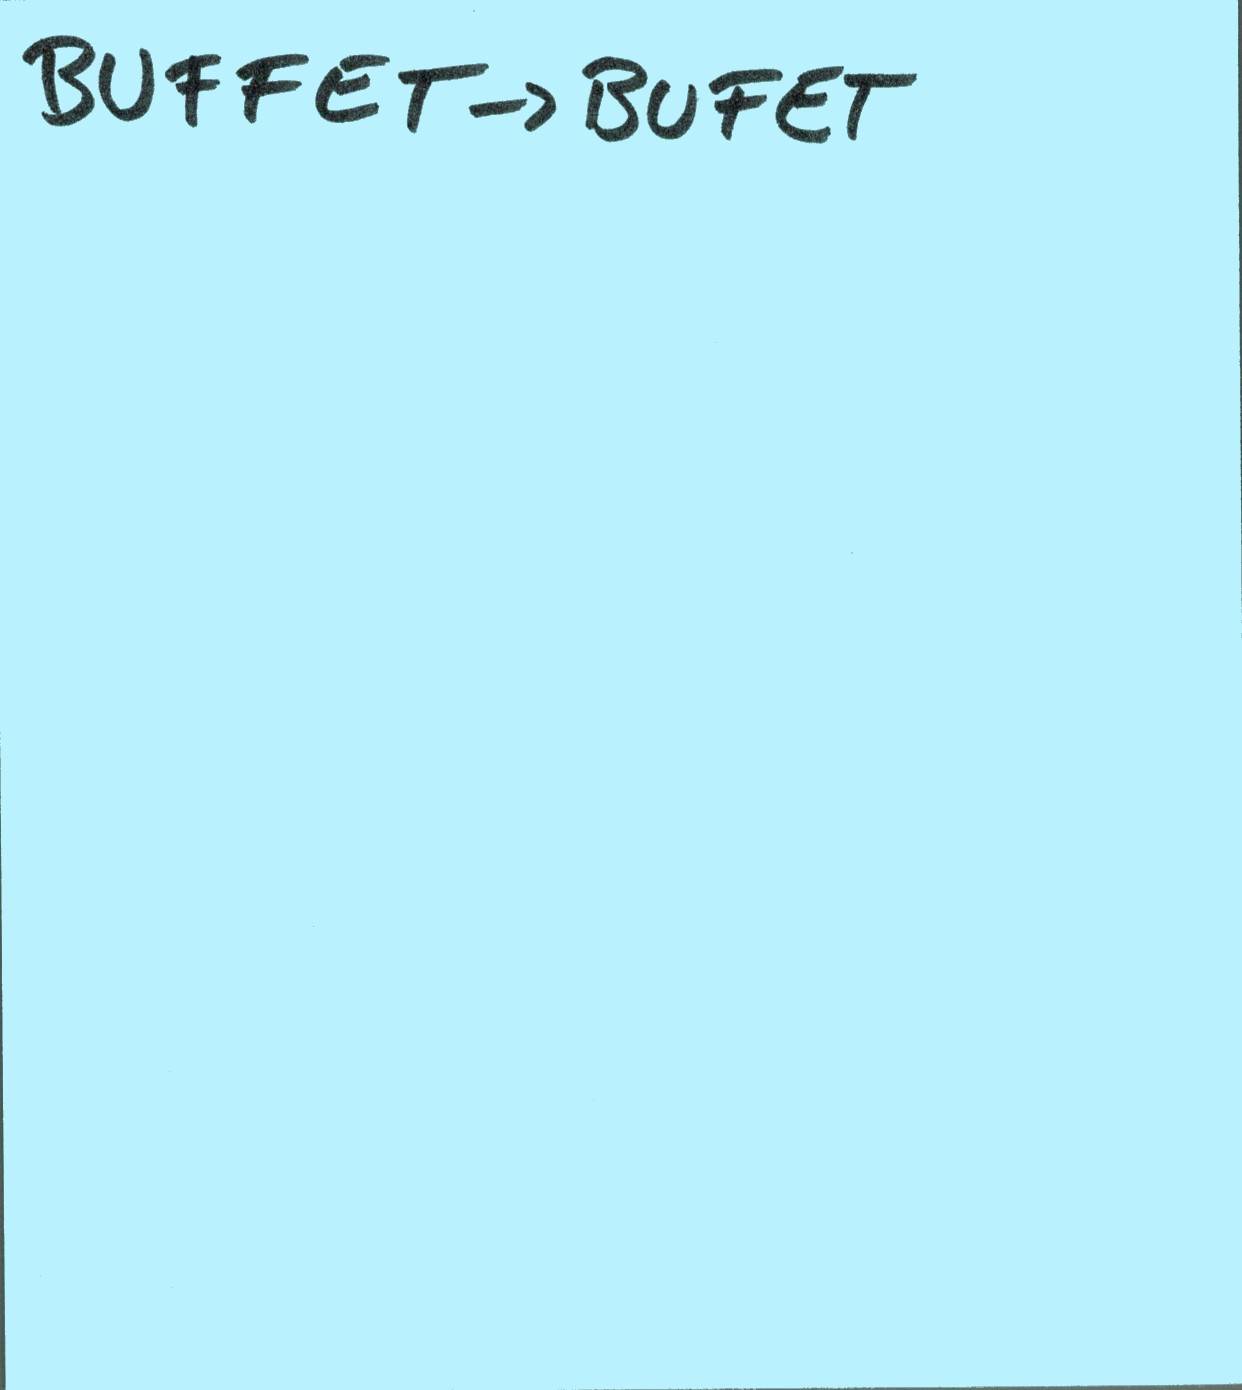 BUFFET -> BUFET